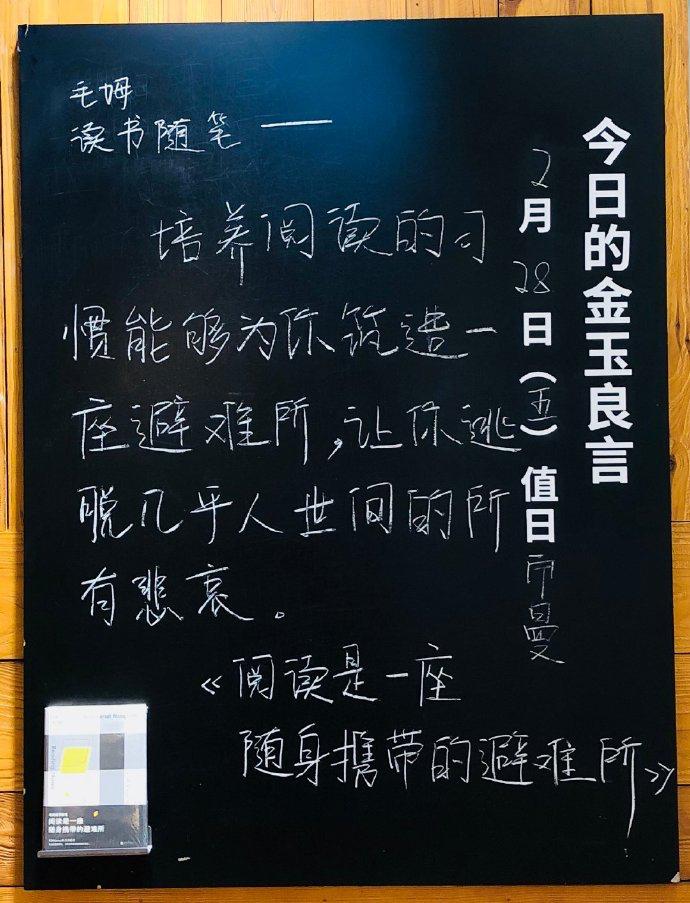 今日的金玉良言
2月28日（五）值日
毛姆
读书随笔——
培养阅读的习
惯能够为你筑造一
座避难所，让你逃
脱几乎人世间的所
有悲哀。
《阅读是一座
随身携带的避难所》
阅读是一座
随身携带的避难所